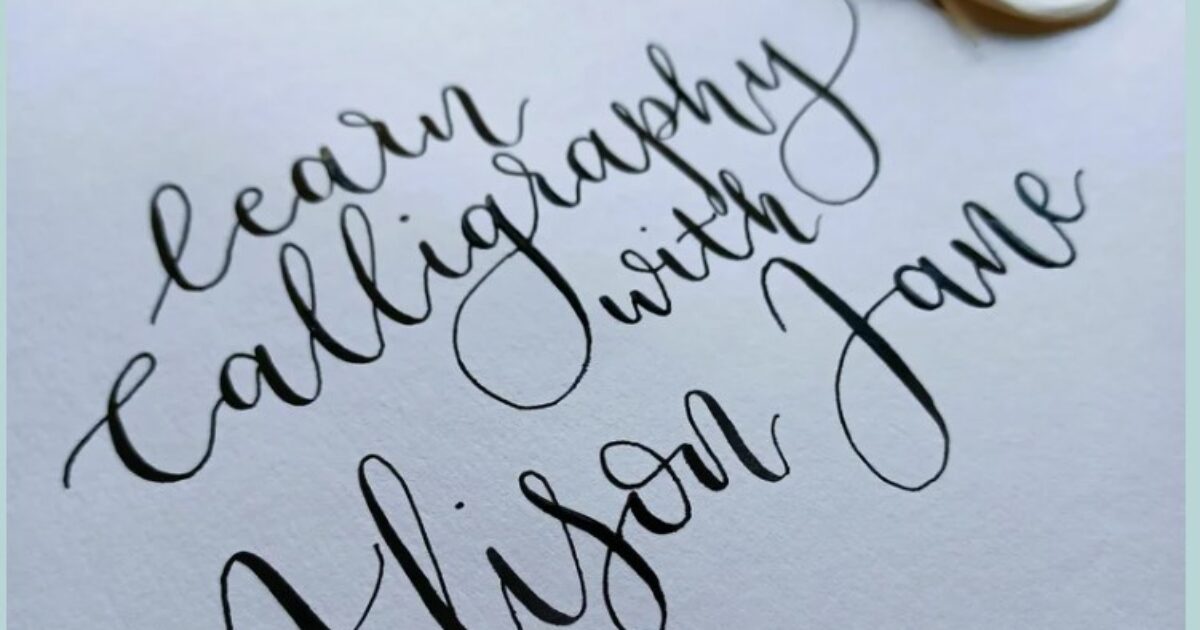 learn
calligraphy
with
Alison Jane